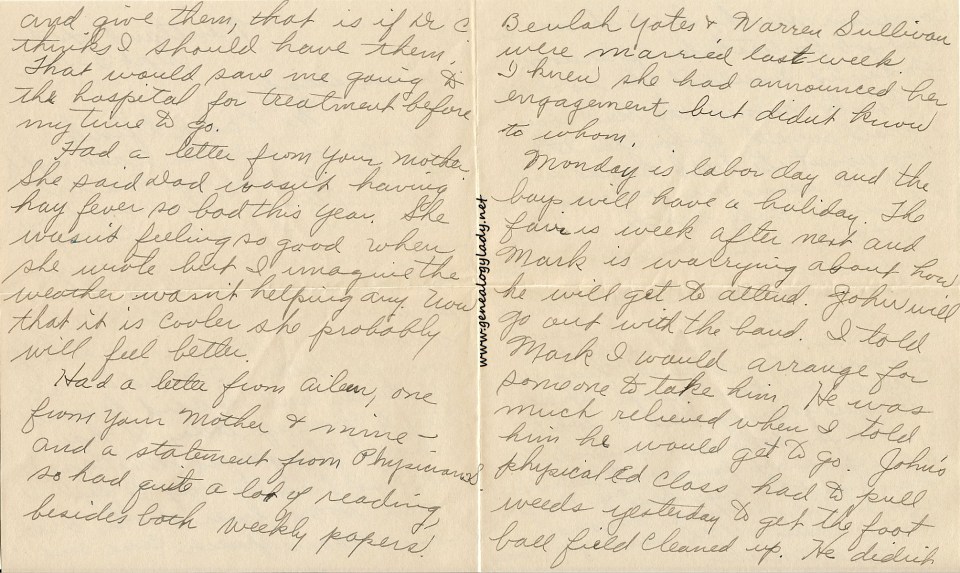 and give them, that is if Dr C
thinks I should have them.
That would save me going to
the hospital for treatment before
my time to go.
Had a letter from your mother.
She said Dad wasn't having
hay fever so bad this year. She
wasn't feeling so good when
she wrote but I imagine the
weather wasn't helping any. Now
that it is cooler she probably
will feel better.
Had a letter from Aileen, one
from your Mother & mine –
and a statement from Physicians.
so had quite a lot of reading,
besides both weekly papers.
www.genealogylady.net
Beulah Yates & Warren Sullivan
were married last week.
I knew she had announced her
engagement but didn't know
to whom.
Monday is labor day and the
boys will have a holiday. The
fair is week after next and
Mark is worrying about how
he will get to attend. John will
go out with the band. I told
Mark I would arrange for
someone to take him. He was
much relieved when I told
him he would get to go. John's
physical Ed class had to pull
weeds yesterday to get the foot
ball field cleaned up. He didn't